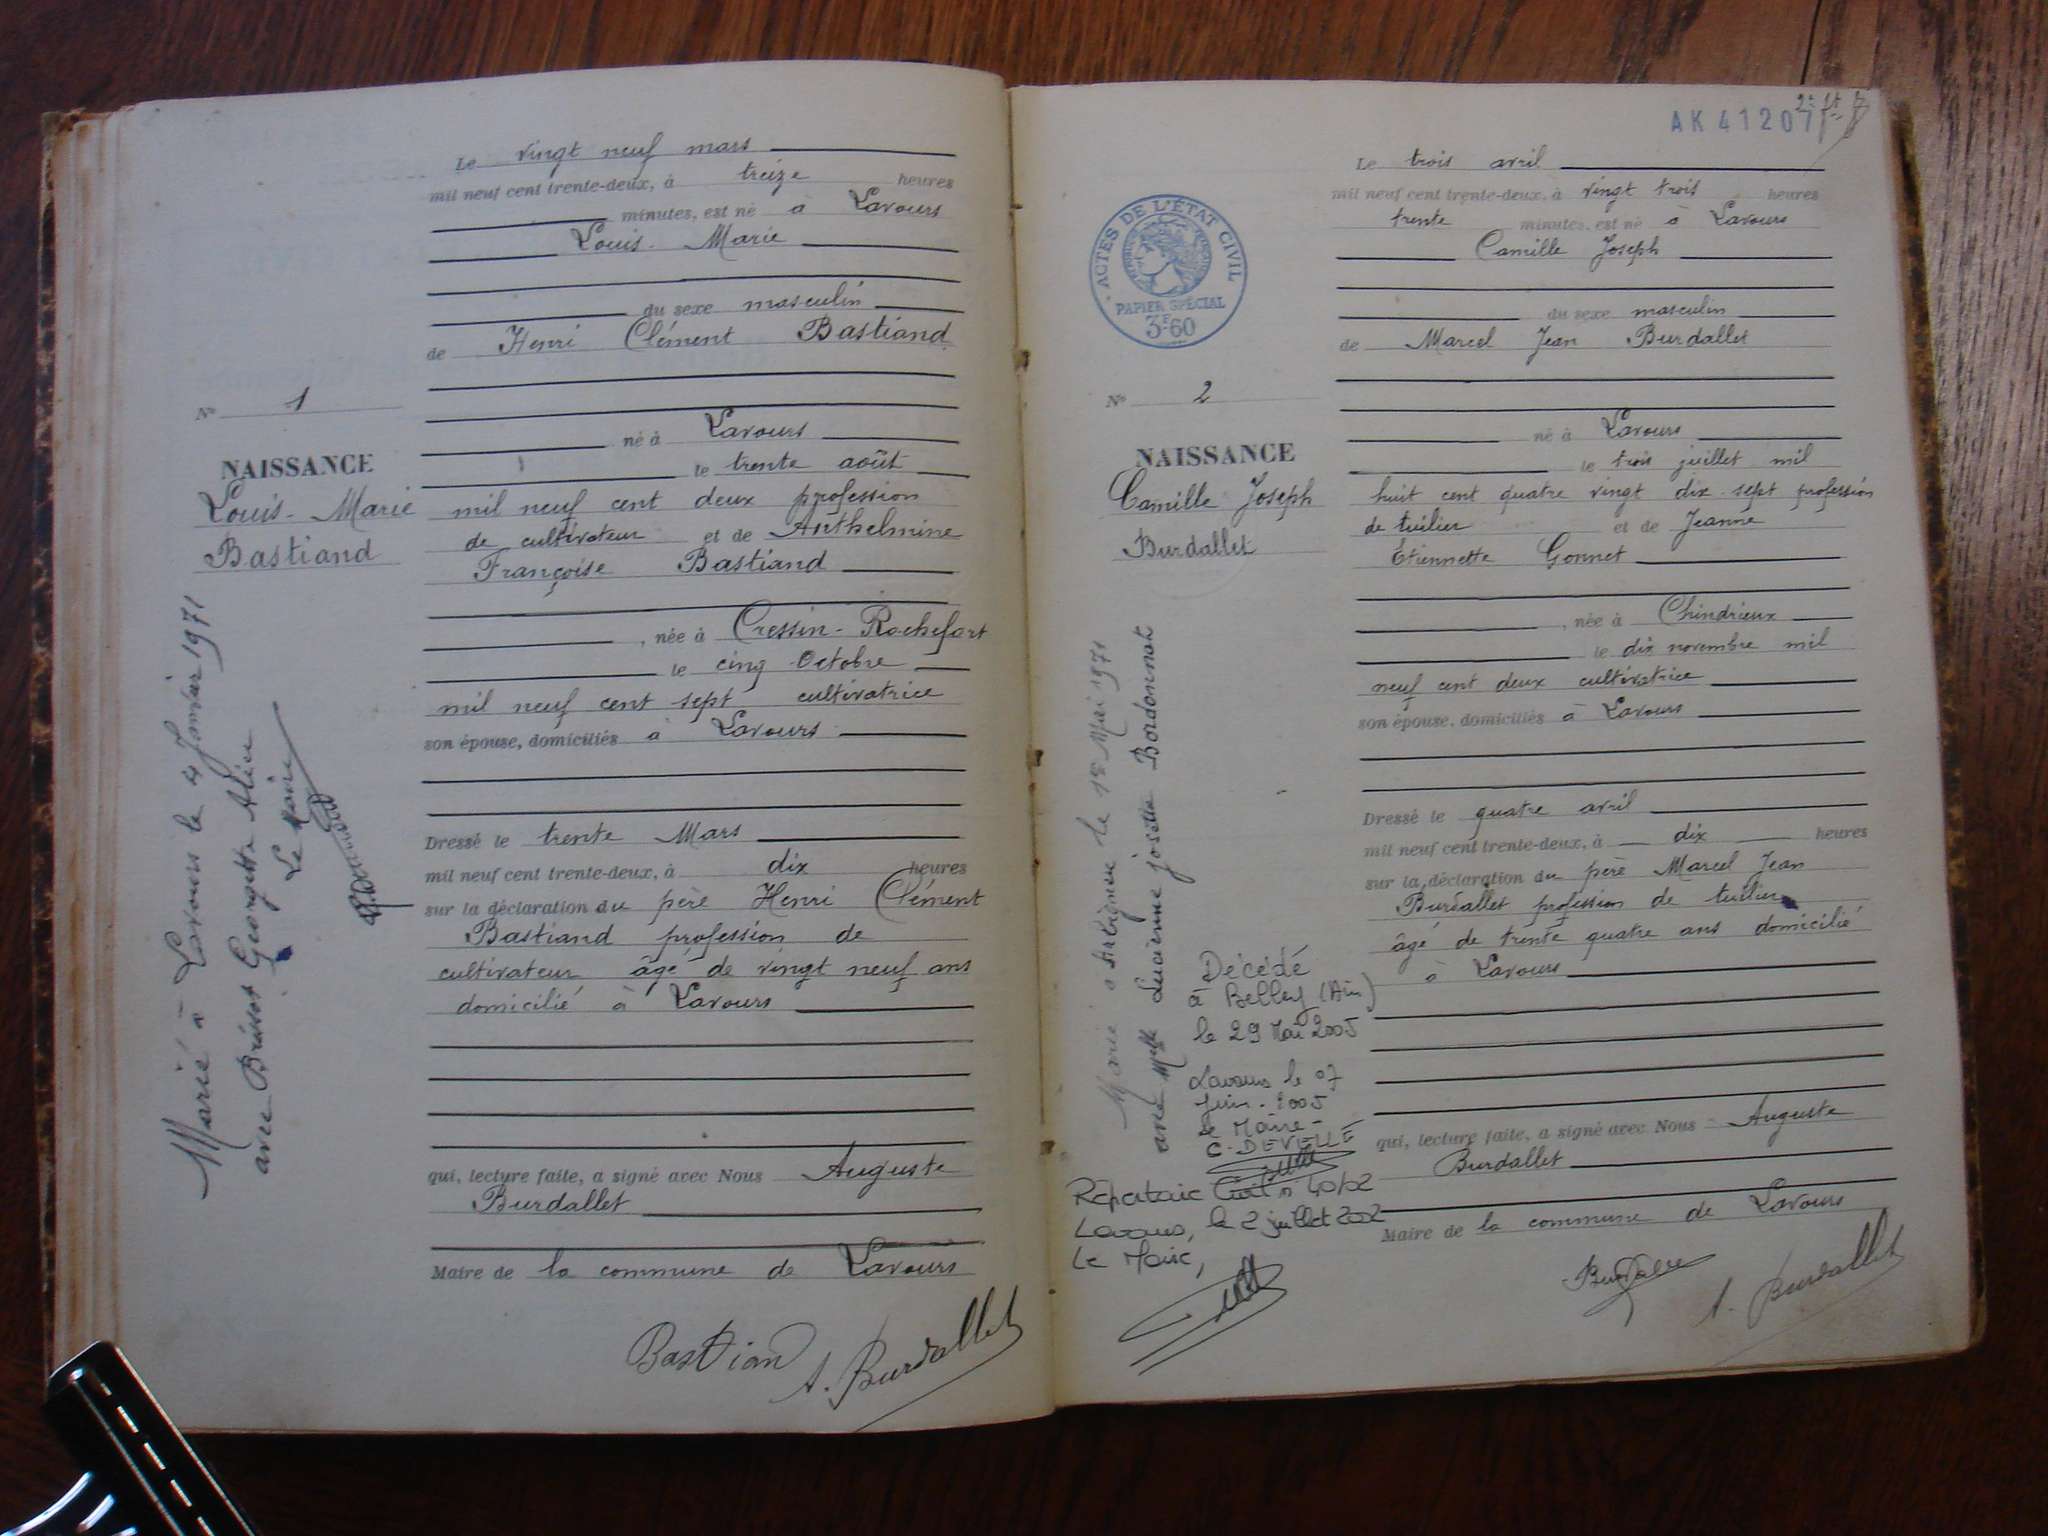 Le vingt neuf mars
mil neuf cent trente-deux, à treize heures
minutes, est né à Lavours
Louis-Marie
du sexe masculin
de Henri Clément Bastiand
né à Lavours
le trente août
mil neuf cent deux profession
de cultivateur et de Anthelmine
Françoise Bastiand
, née à Cressin-Rochefort
le cinq Octobre
mil neuf cent sept cultivatrice
son épouse, domiciliés à Lavours
Dressé le trente Mars
mil neuf cent trente-deux, à dix heures
sur la déclaration du père Henri Clément
Bastiand profession de
cultivateur âgé de vingt neuf ans
domicilié à Lavours
qui, lecture faite, a signé avec Nous Auguste
Burdallet
Maire de la commune de Lavours
Bastian A. Burdallet
N° 1
NAISSANCE
Louis-Marie
Bastiand
Marié à Lavours le 4 Janvier 1971
avec Georgette
Le Maire
AK 41207
ACTES DE L'ÉTAT CIVIL
PAPIER SPÉCIAL
3F60
N° 2
NAISSANCE
Camille Joseph
Burdallet
Le trois avril
mil neuf cent trente-deux, à vingt trois heures
trente minutes, est né à Lavours
Camille Joseph
du sexe masculin
de Marcel Jean Burdallet
né à Lavours
le trois juillet mil
huit cent quatre vingt dix-sept profession
de tuilier et de Jeanne
Etiennette Gonnet
, née à Chindrieux
le dix novembre mil
neuf cent deux cultivatrice
son épouse, domiciliés à Lavours
Dressé le quatre avril
mil neuf cent trente-deux, à dix heures
sur la déclaration du père Marcel Jean
Burdallet profession de tuilier
âgé de trente quatre ans domicilié
à Lavours
qui, lecture faite, a signé avec Nous Auguste
Burdallet
Maire de la commune de Lavours
A. Burdallet
Marié à le 1er Mai 1971
avec Melle Lucienne josette Bordonnat
Décédé
à Belley (Ain)
le 29 Mai 2005
Lavours le 07
Juin 2005
Le Maire
C. DEVELLE
Répertoire Civil n° 40/02
Lavours, le 2 juillet 2002
Le Maire,